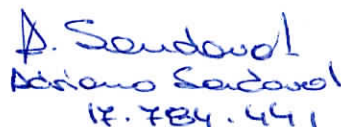 A. Sandoval
Adriano Sandoval
17.784.441